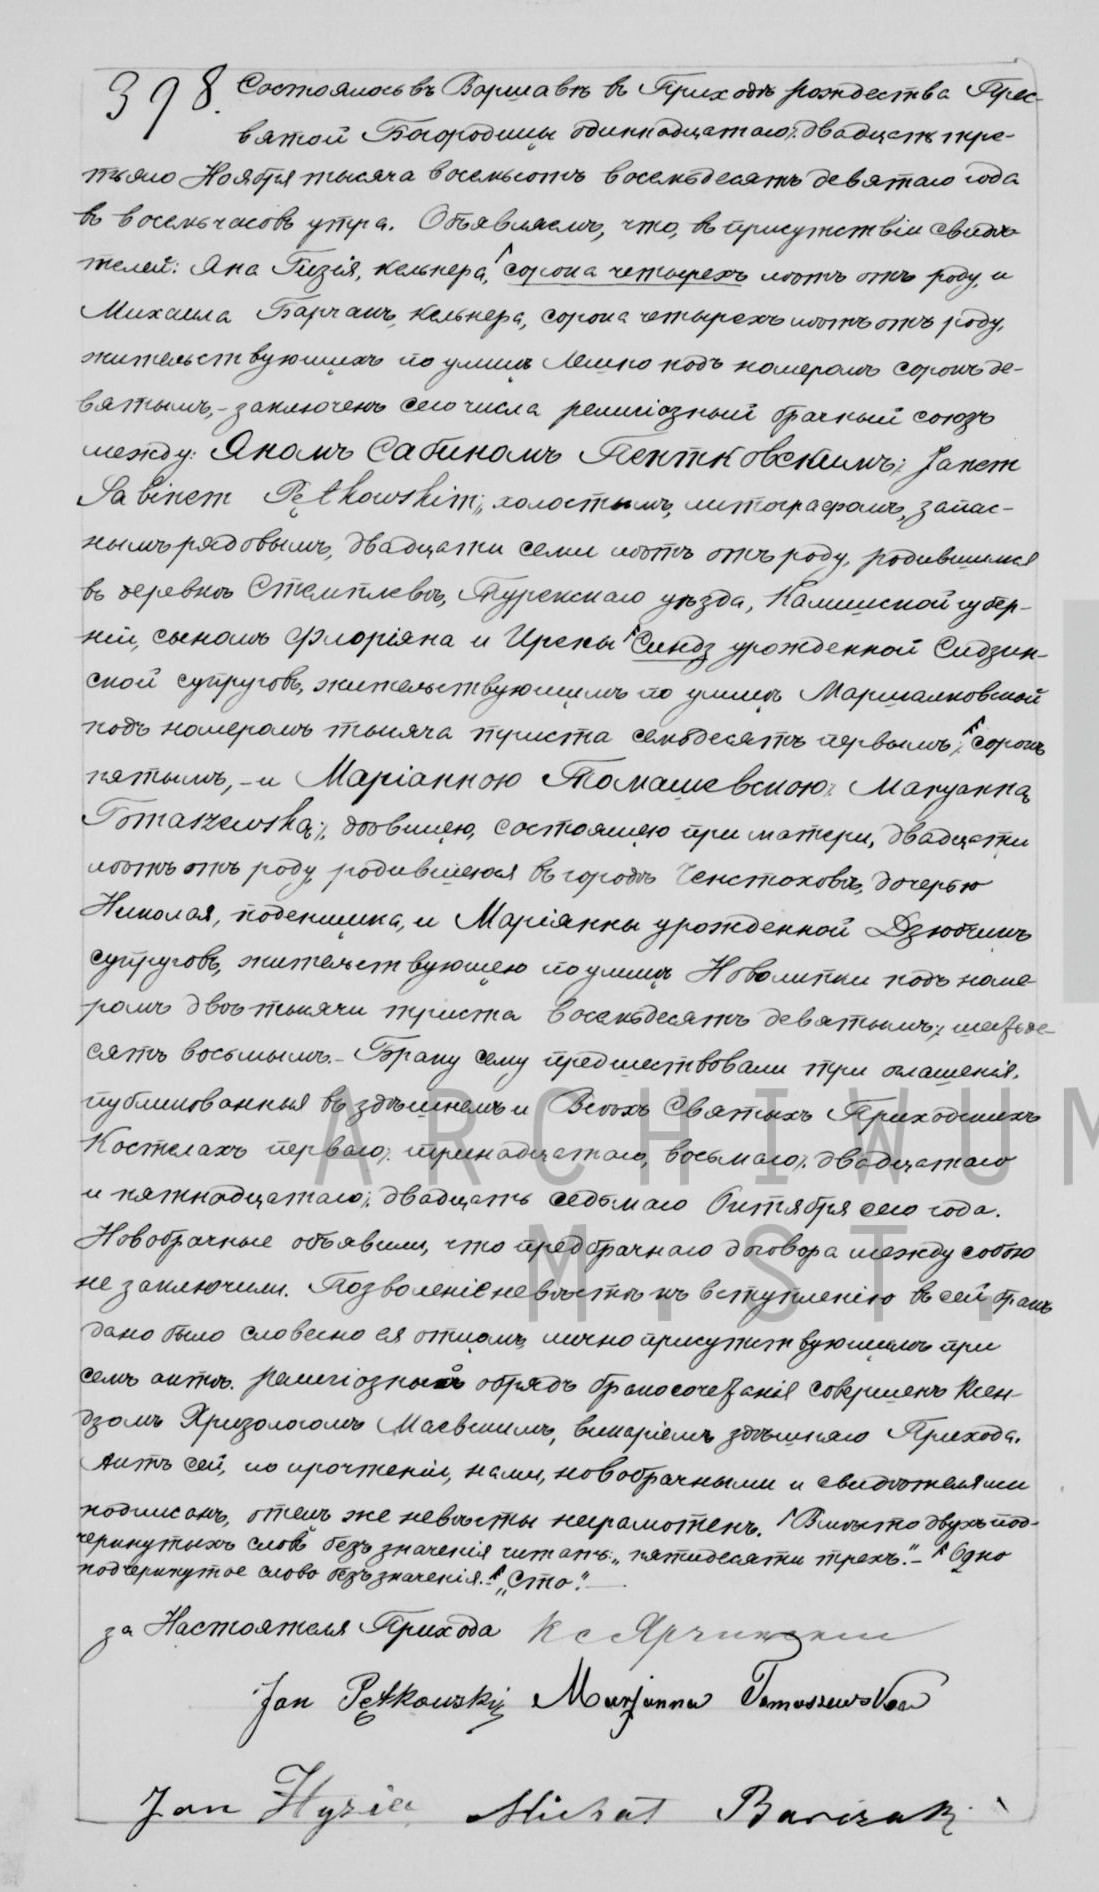 398. Состоялось въ Варшавѣ въ Приходѣ рождества Прес-
вятой Богородицы одиннадцатаго /: двадцать тре-
тьяго Ноября тысяча восемьсотъ восемьдесятъ девятаго года
въ восемь часовъ утра. Объявляемъ, что, въ присутствіи свидѣ-
телей: Яна Гизія, кельнера, сорока четырехъ лѣтъ отъ роду, и
Михаила Барчакъ, кельнера, сорока четырехъ лѣтъ отъ роду,
жительствующихъ по улицѣ Лешно подъ номеромъ сорокъ де-
вятымъ, - заключенъ сего числа религіозный брачный союзъ
между: Яномъ Сабиномъ Пентковскимъ /: Janem
Sabinem Pętkowskim :/, холостымъ, литографомъ, запас-
нымъ рядовымъ, двадцати семи лѣтъ отъ роду, родившимся
въ деревнѣ Стемплевѣ, Турекскаго уѣзда, Калишской губер-
ніи, сыномъ Флоріяна и Ирены Сындз урожденной Сидзин-
ской супруговъ, жительствующимъ по улицѣ Маршалковской
подъ номеромъ тысяча триста семьдесятъ первымъ /: сорокъ
пятымъ, - и Маріанною Томашевскою /: Маryанną
Tomaszewską :/, дѣвицею, состоящею при матери, двадцати
лѣтъ отъ роду, родившеюся въ городѣ Ченстоховѣ, дочерью
Николая, поденщика, и Маріянны урожденной Дзюбчикъ
супруговъ, жительствующею по улицѣ Новолипки подъ номе-
ромъ двѣ тысячи триста восемьдесятъ девятымъ /: шестьде-
сятъ восьмымъ. - Браку сему предшествовали три оглашенія,
публикованныя въ здѣшнемъ и Всѣхъ Святыхъ Приходскихъ
Костелахъ перваго /: тринадцатаго, восьмаго /: двадцатаго
и пятнадцатаго /: двадцать седьмаго Октября сего года.
Новобрачные объявили, что предбрачнаго договора между собою
не заключили. Позволеніе невѣстѣ къ вступленію въ сей бракъ
дано было словесно ея отцомъ, лично присутствующимъ при
семъ актѣ. Религіозный обрядъ бракосочетанія совершенъ Ксен-
дзомъ Хризологомъ Маевскимъ, викаріемъ здѣшняго Прихода.
Актъ сей, по прочтеніи, нами, новобрачными и свидѣтелями
подписанъ, отецъ же невѣсты неграмотенъ. Вмѣсто двухъ под-
черкнутыхъ словъ безъ значенія читать: „пятидесяти трехъ." - Одно
подчеркнутое слово безъ значенія. - „Сто". -
за Настоятеля Прихода Кс
Jan Pętkowski Marjanna Tomaszewska
Jan Hyzia Michał Barczak
ARCHIWUM
M. ST.